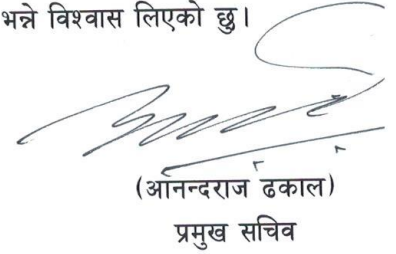 भन्ने विश्वास लिएको छु।
(आनन्दराज ढकाल)
प्रमुख सचिव